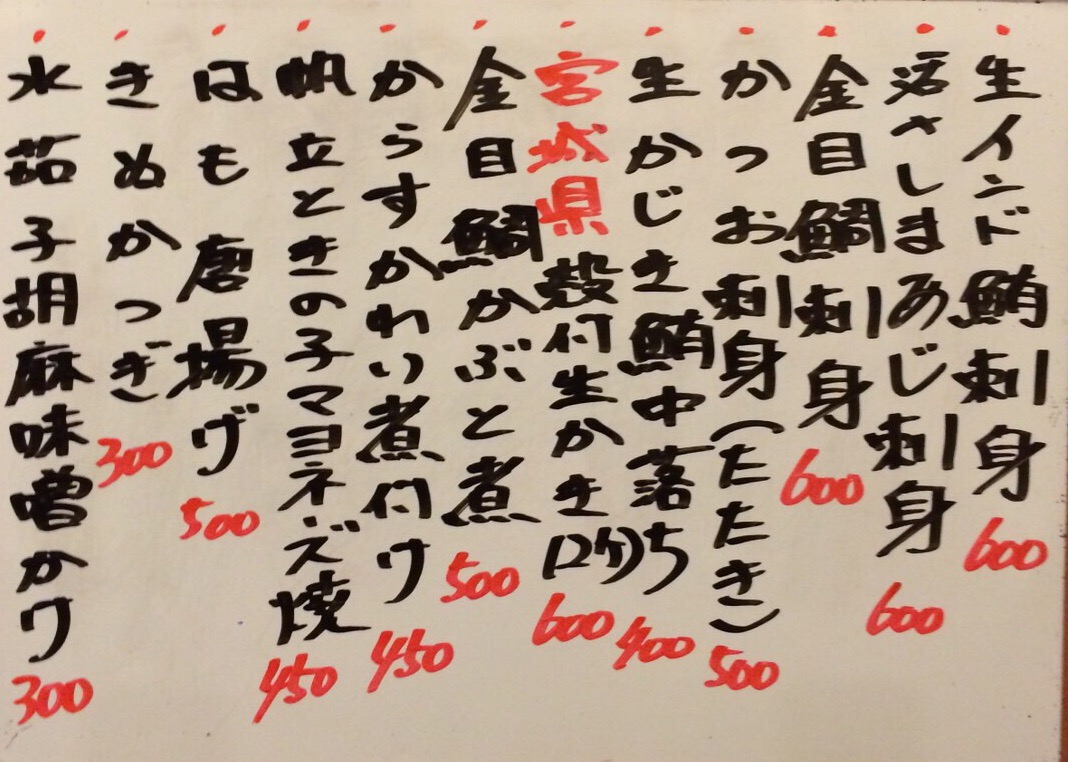 生インド鮪刺身 600
活さしまあじ刺身 600
金目鯛刺身 600
かつお刺身(たたき) 500
生かじき鮪中落ち 400
宮城県殻付生かき 600
金目鯛かぶと煮 500
からすかれい煮付ケ 450
帆立ときの子マヨネーズ焼 450
はも唐揚げ 500
きぬかつぎ 300
水茄子胡麻味噌かけ 300